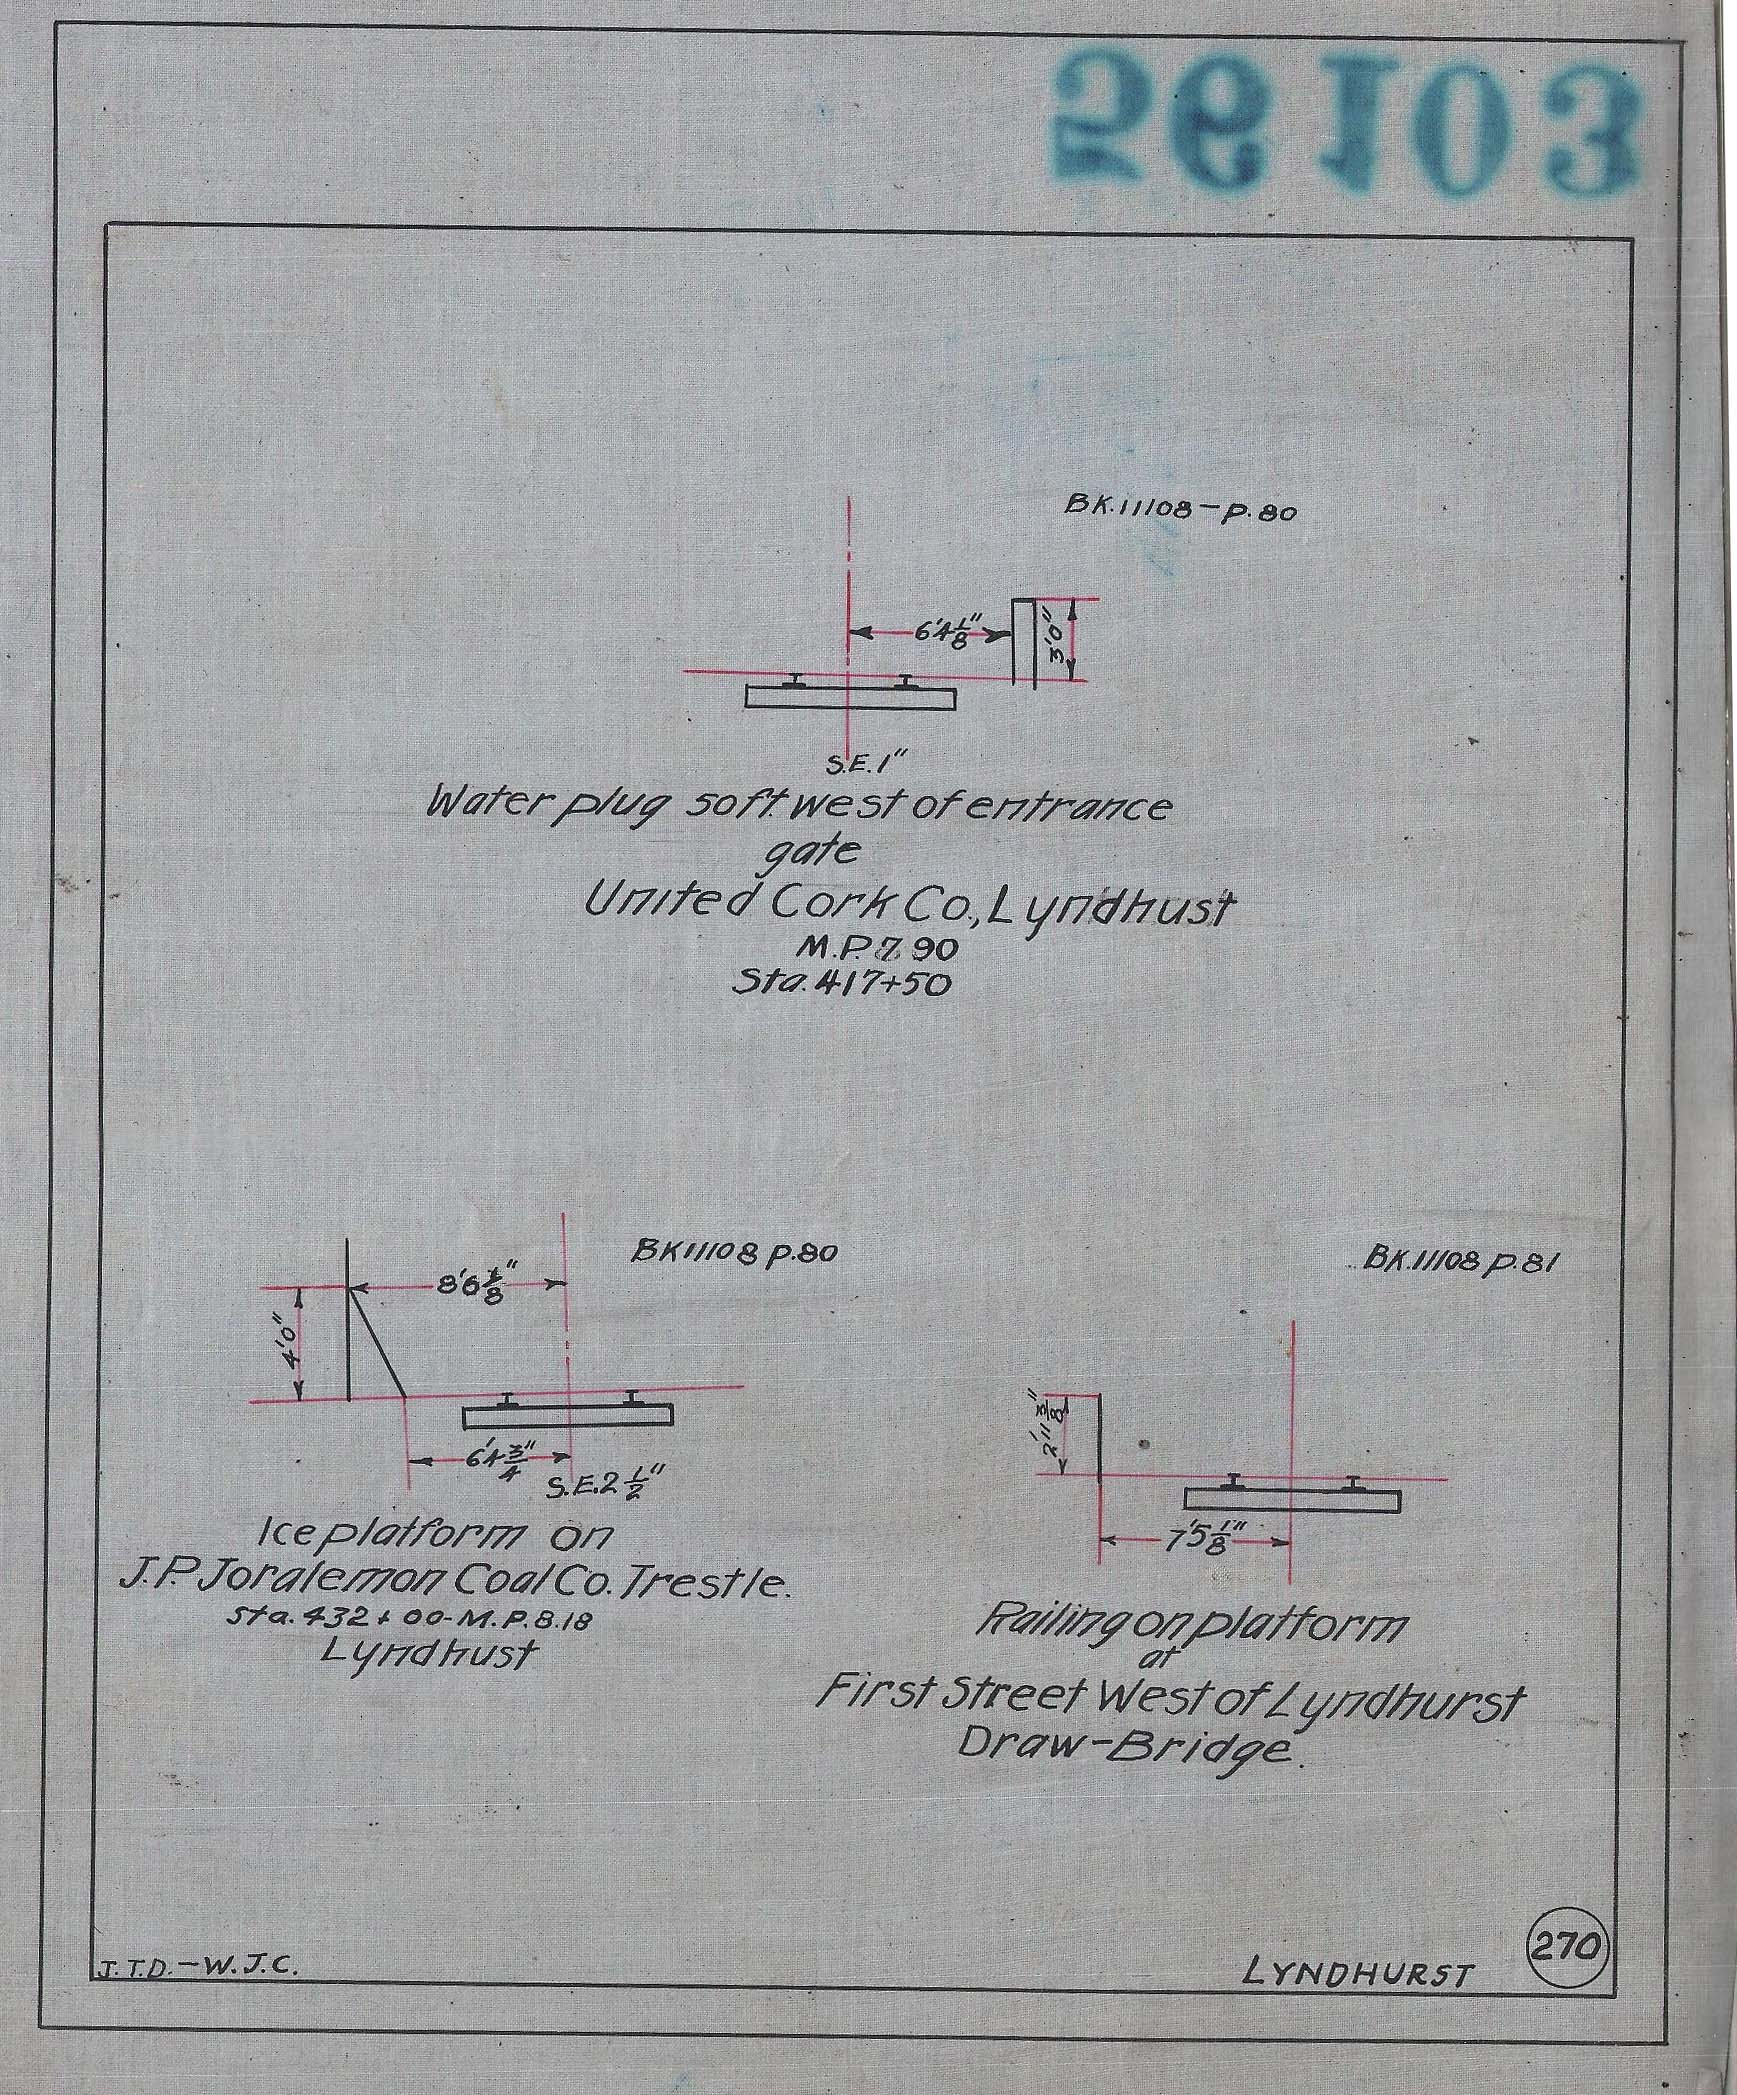 56103
BK.11108-P.80
6'4 1/8"
3'0"
S.E.1"
Water plug 50ft. west of entrance
gate
United Cork Co., Lyndhust
M.P. 7.90
Sta. 417+50
BK11108 P.80
8'6 1/8"
4'0"
6'4 3/4"
S.E.2 1/2"
Ice platform on
J.P. Joralemon Coal Co. Trestle.
Sta. 432+00-M.P.8.18
Lyndhust
BK.11108 P.81
2'11 3/8"
7'5 1/8"
Railing on platform
at
First Street West of Lyndhurst
Draw-Bridge.
J.T.D.-W.J.C.
LYNDHURST
270